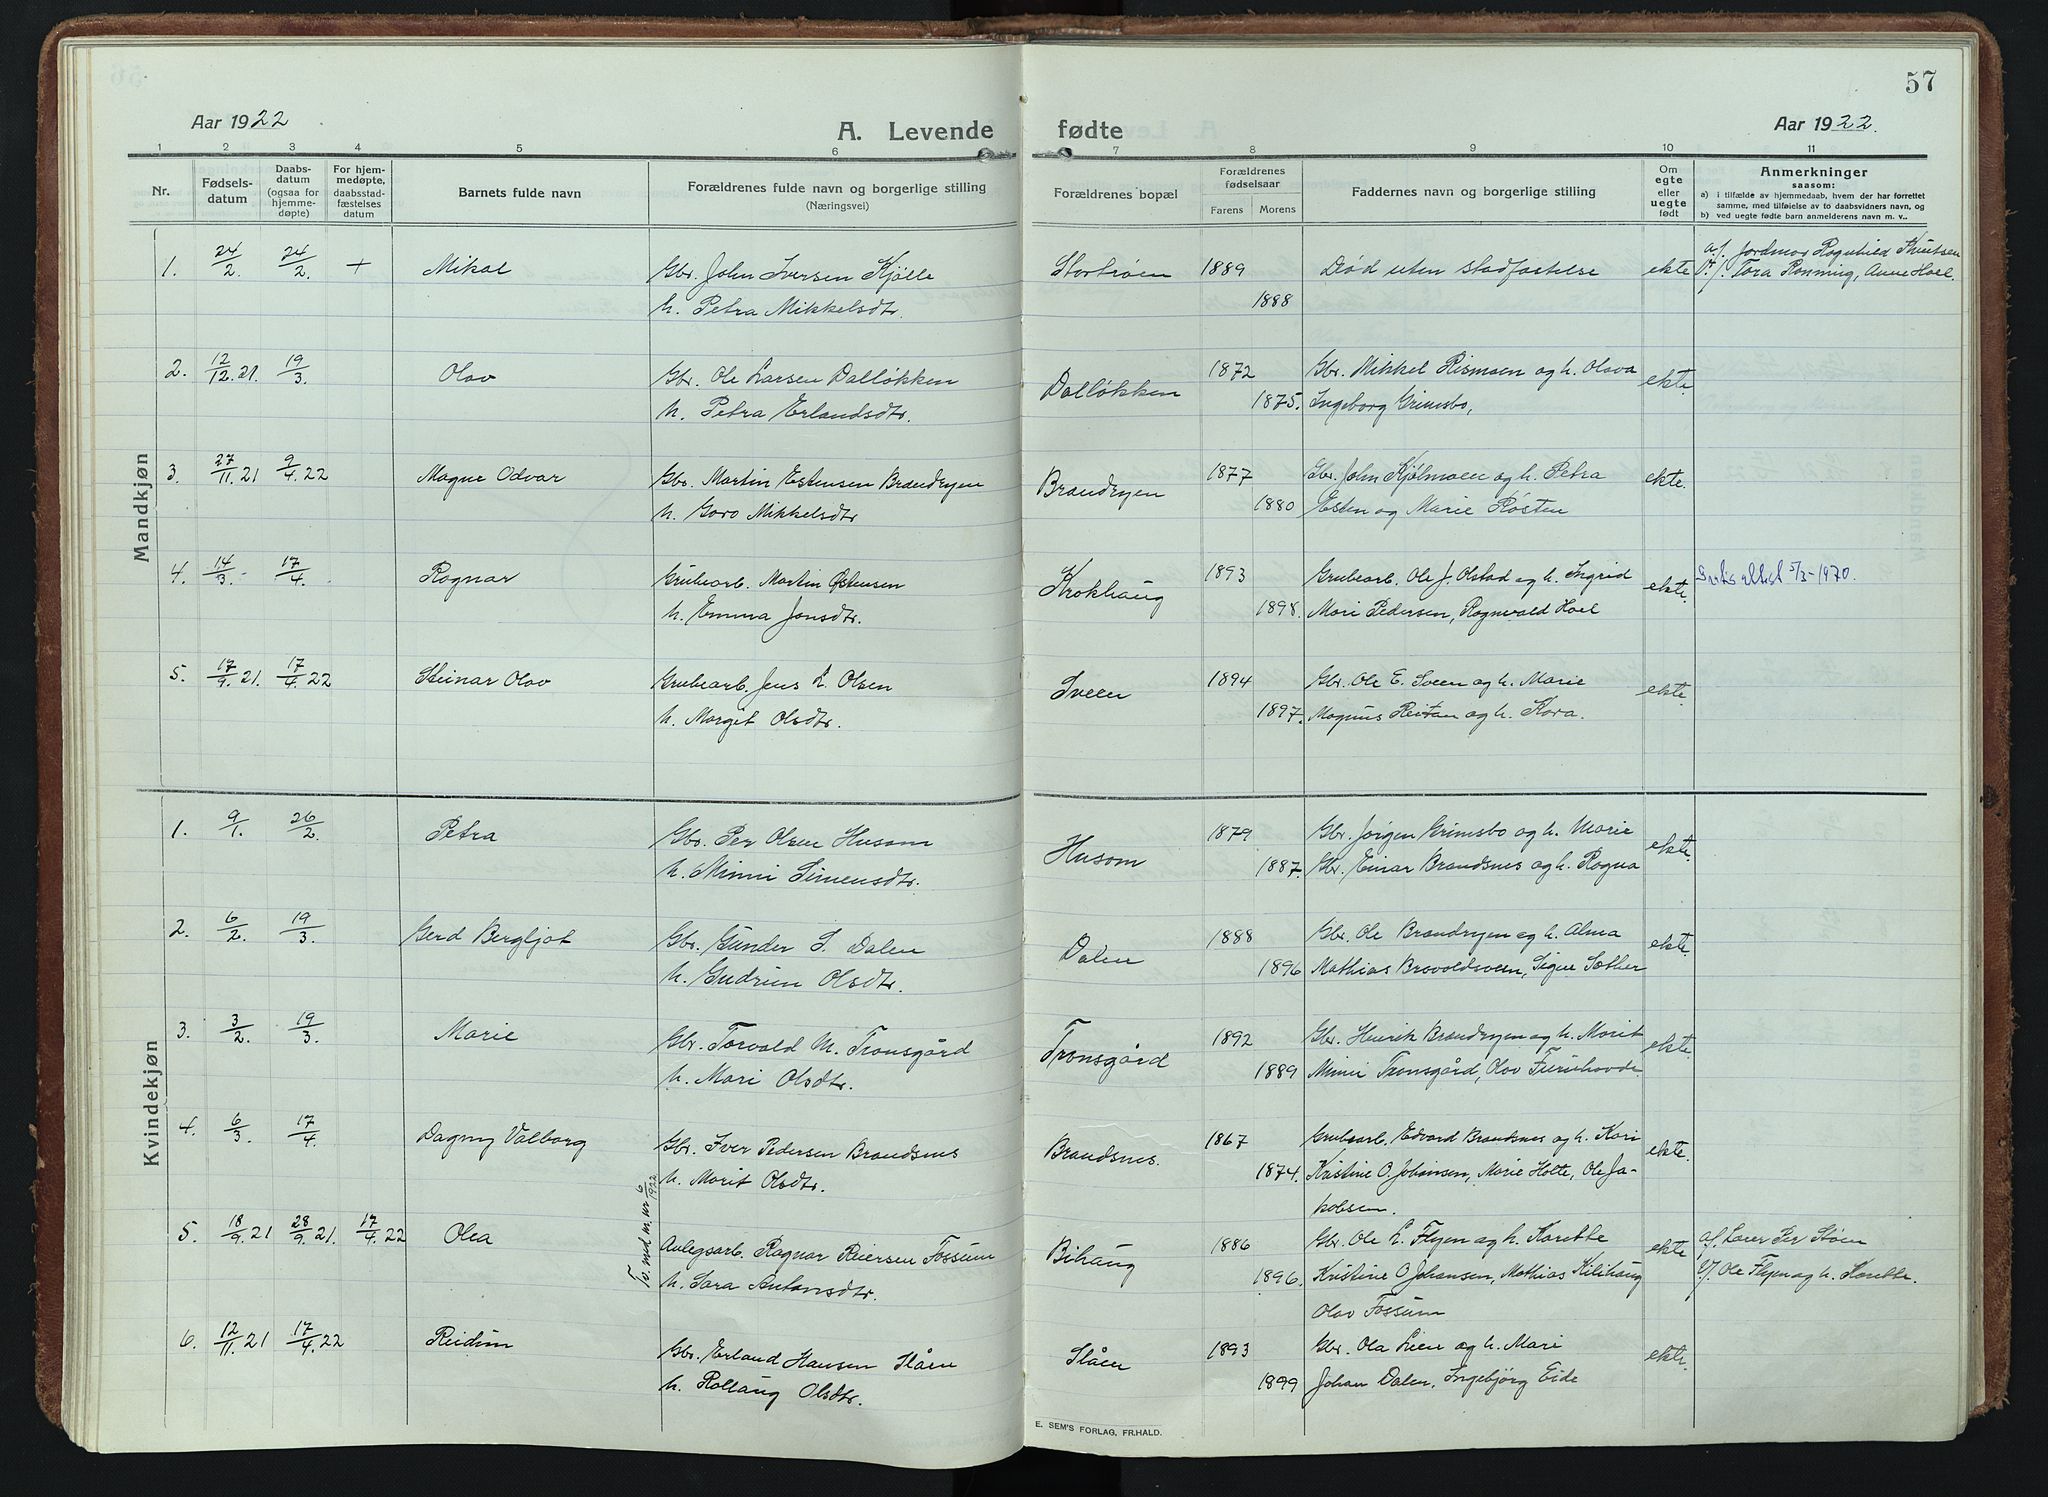 57
Aar 1922
A. Levende fødte
Aar 1922.
1 2 3 4 5 6 7 8 9 10 11
Nr.
Fødsels-
datum
Daabs-
datum
(ogsaa for
hjemme-
døpte)
For hjem-
medøpte,
daabsstad-
fæstelses
datum
Barnets fulde navn
Forældrenes fulde navn og borgerlige stilling
(Næringsvei)
Forældrenes bopæl
Forældrenes
fødselsaar
Farens Morens
Faddernes navn og borgerlige stilling
Om
egte
eller
uegte
født
Anmerkninger
saasom:
a) i tilfælde av hjemmedaab, hvem der har forrettet
samme, med tilføielse av to daabsvidners navn, og
b) ved uegte fødte barn anmelderens navn m. v..
Mandkjøn
1. 24/2. 24/2. + Mikal Gbr. John Iversen Kjølle Stortrøen 1889 Død uten stadfæstelse ekte a/. Jordmor Ragnhild Knutsen
h. Petra Mikkelsdtr. 1888 V/. Tora Rønning, Anne Hoel.
2. 12/12.21. 19/3. Olav Gbr. Ole Larsen Dalløkken Dalløkken 1872 Gbr. Mikkel Rismoen og h. Olava ekte.
h. Petra Erlandsdtr. 1875. Ingeborg Grimsbo,
3. 27/11.21 9/4.22 Magne Odvar Gbr. Martin Estensen Brandryen Brandryen 1877 Gbr. John Kjølmoen og h. Petra ekte.
h. Goro Mikkelsdtr 1880 Esten og Marie Røsten
4. 14/3. 17/4. Ragnar Grubearb. Martin Østensen Krokhaug 1893 Grubearb. Ole J. Olstad og h. Ingrid ekte. 5/3-1970.
h. Emma Jonsdtr. 1898. Mari Pedersen, Ragnvald Hoel
5. 17/9.21. 17/4.22 Steinar Olav Grubearb. Jens L. Olsen Sveen 1894 Gbr. Ole E. Sveen og h. Marie ekte.
h. Margit Olsdtr. 1897. Magnus Reitan og h. Kara.
Kvindekjøn
1. 9/1. 26/2. Petra Gbr. Per Olsen Husom Husom 1879 Gbr. Jørgen Grimsbo og h. Marie ekte.
h. Minni Simensdtr. 1887. Gbr. Einar Brandsnes og h. Ragna
2. 6/2. 19/3. Gerd Bergljot Gbr. Gunder S. Dalen Dalen 1888 Gbr. Ole Brandryen og h. Alma ekte.
h. Gudrun Olsdtr. 1896 Mathias Bravoldsveen, Signe Sæther
3. 3/2. 19/3. Marie Gbr. Torvald M. Tronsgård Tronsgård 1892 Gbr. Henrik Brandryen og h. Marit ekte.
h. Mari Olsdtr. 1889 Minni Tronsgård, Olav Furuhovde.
4. 6/3. 17/4. Dagny Valborg Gbr. Iver Pedersen Brandsnes Brandsnes. 1867 Grubearb. Edvard Brandsnes og h. Kari ekte.
h. Marit Olsdtr. 1874. Kristine O. Johansen, Marie Holte, Ole Ja-
kobsen.
Tv. med m. nr 6/1922
5. 18/9.21 28/9.21. 17/4.22 Olea Anlegsarb. Ragnar Reiersen Fossum Bihaug 1886 Gbr. Ole L. Flyen og h. Karette ekte a/. Lærer Per Støen
h. Sara Antonsdtr. 1896. Kristine O Johansen, Mathias Kilihaug V/. Ole Flyen og h. Karette.
Olav Fossum
6. 12/11.21 17/4.22 Reidun Gbr. Erland Hansen Slåen Slåen 1893 Gbr. Ola Lien og h. Mari ekte.
h. Rollaug Olsdtr. 1899 Johan Dalen, Ingebjørg Eide
E. SEM'S FORLAG, FR.HALD.